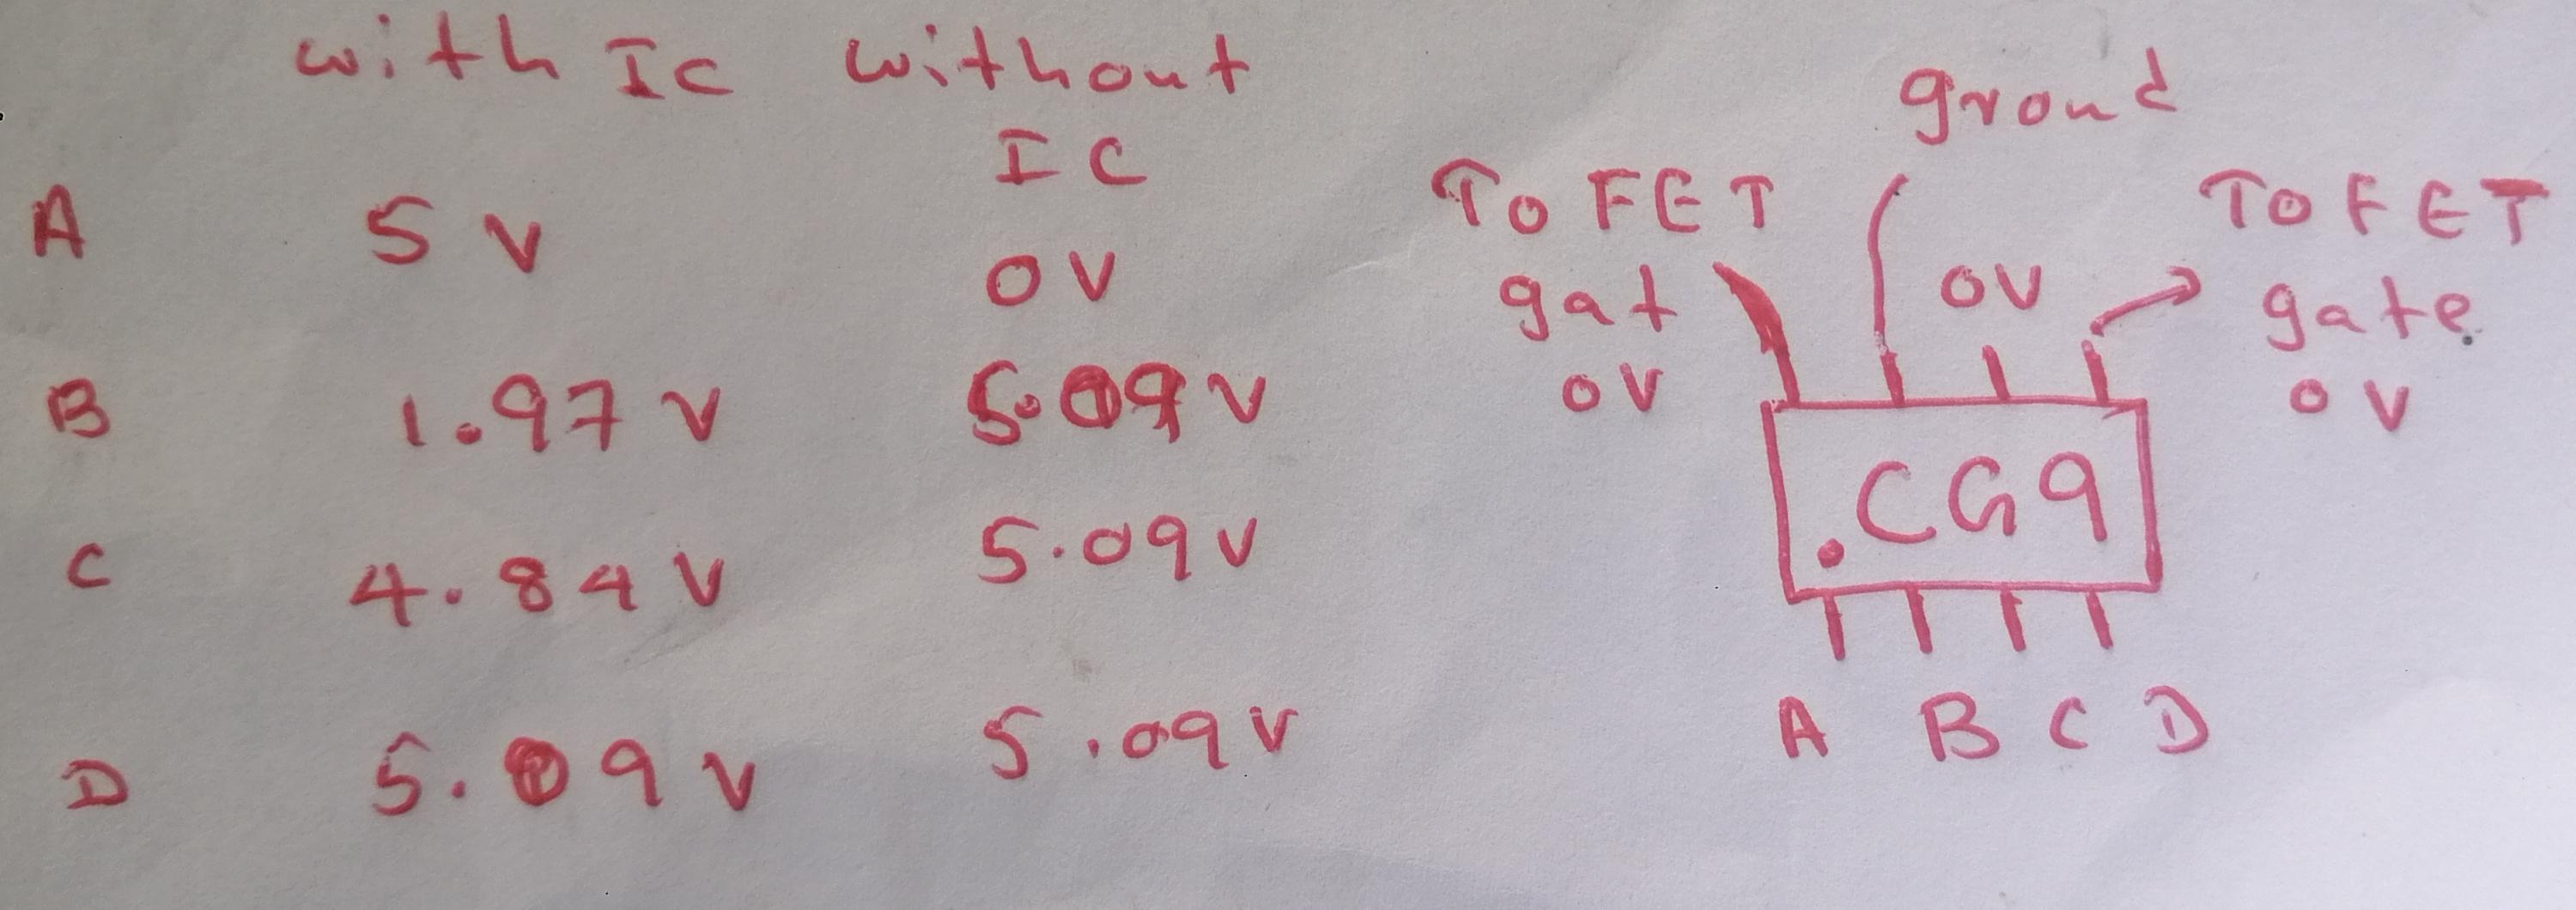 with IC without
IC
A 5 V
0V
B 1.97 V 5.09 V
C 4.84 V 5.09 V
D 5.09 V 5.09 V
grond
To FET
gat
0V
0V
To FET
gate
0 V
.CG9
A B C D